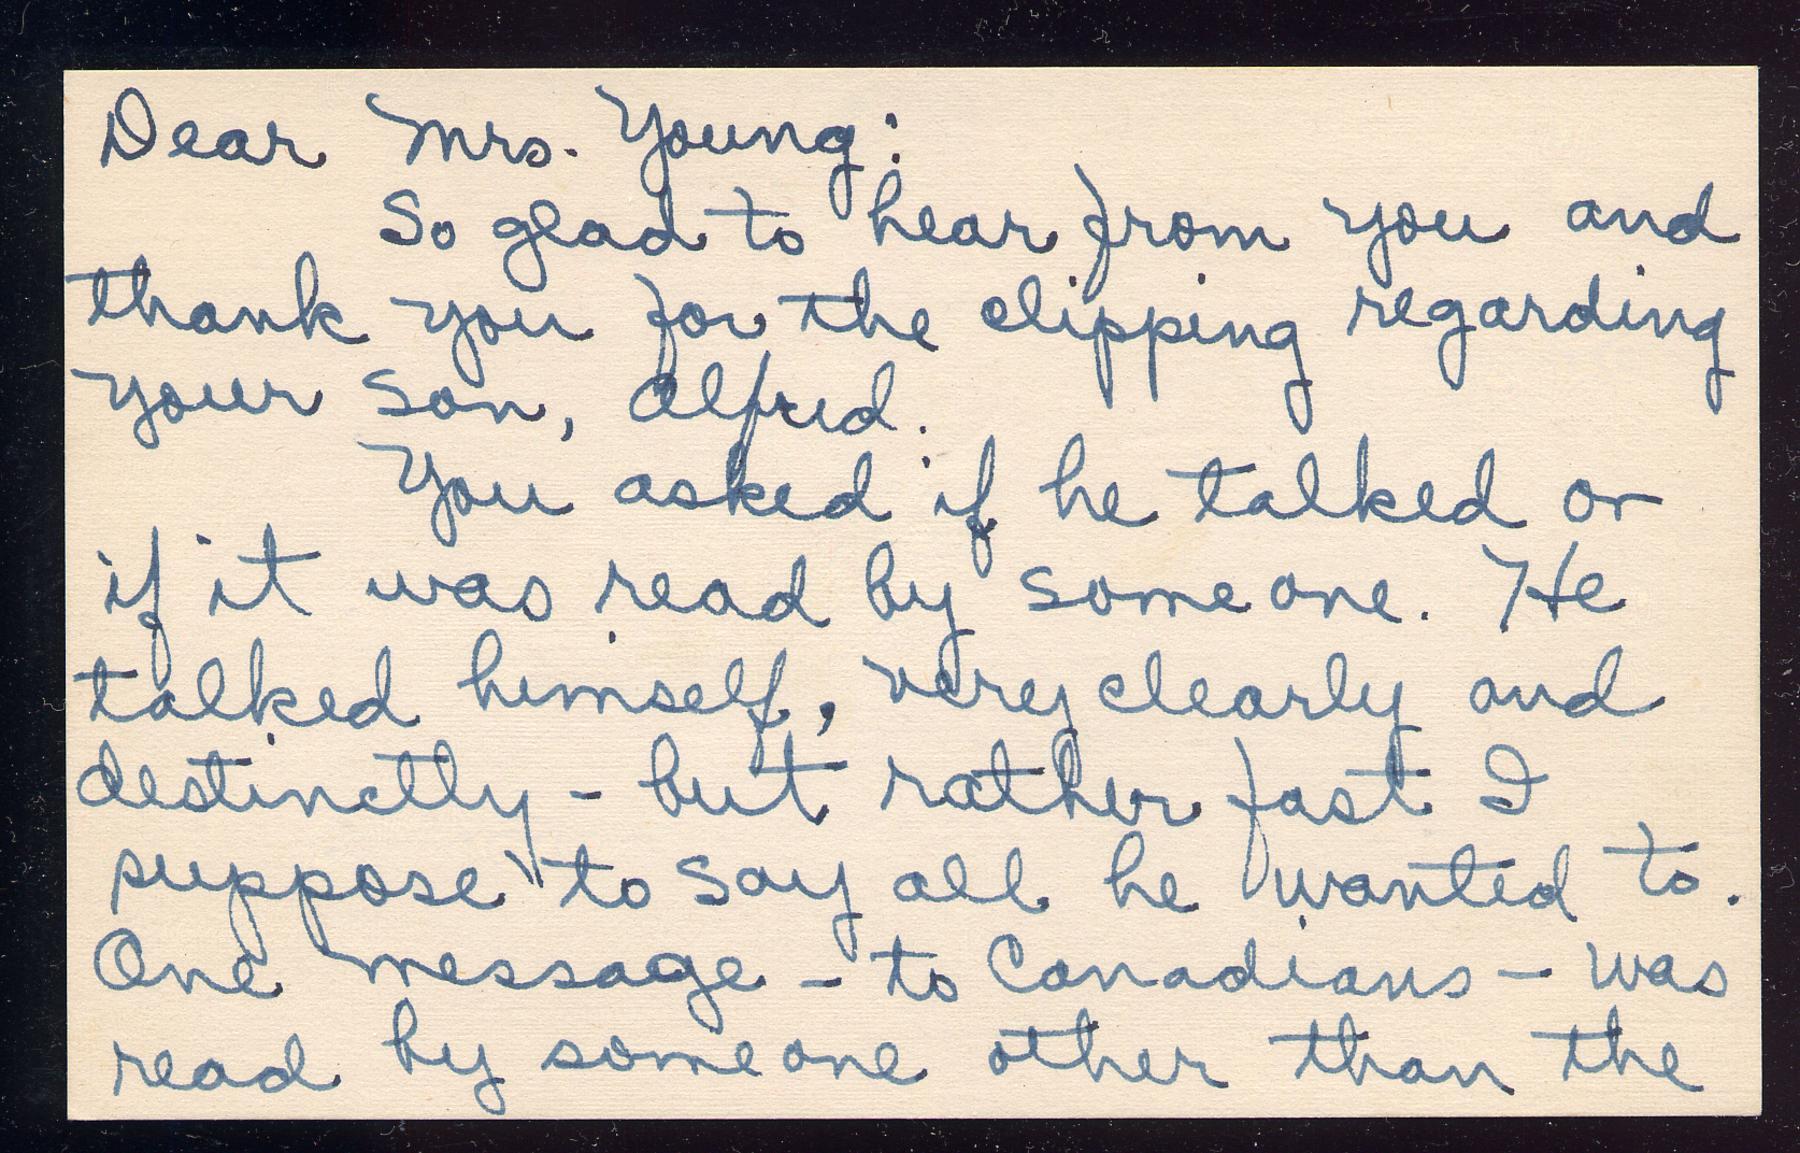 Dear Mrs. Young:
So glad to hear from you and
thank you for the clipping regarding
your son, Alfred.
You asked if he talked or
if it was read by someone. He
talked himself, very clearly and
destinctly - but rather fast I
suppose to say all he wanted to.
One message - to Canadians - was
read by someone other than the